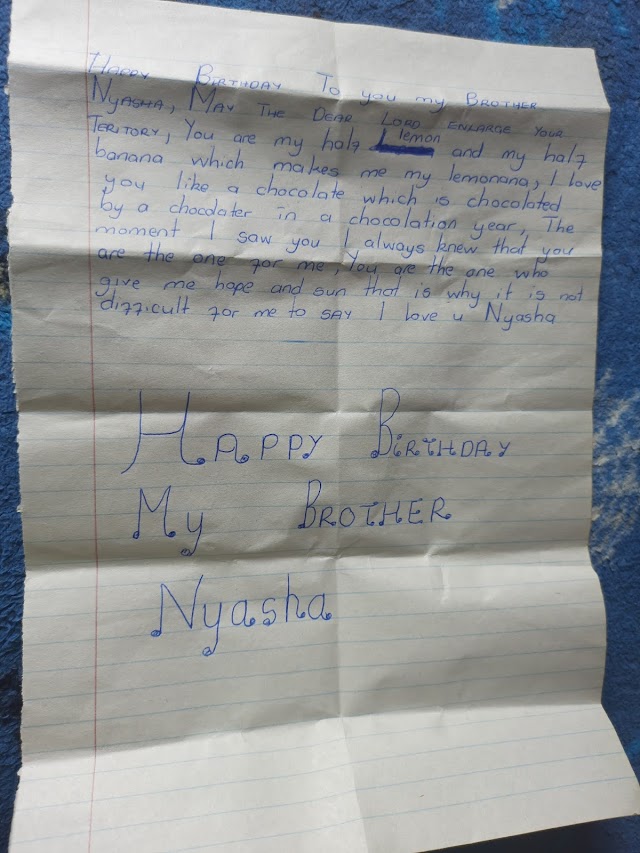 HAPPY BIRTHDAY To you my BROTHER
NYASHA, MAY THE DEAR LORD ENLARGE YOUR
TERITORY, You are my half lemon and my half
banana which makes me my lemonana, I love
you like a chocolate which is chocolated
by a chocolater in a chocolation year, The
moment I saw you I always knew that you
are the one for me, You are the one who
give me hope and sun that is why it is not
difficult for me to SAY I love u Nyasha
HAPPY BIRTHDAY
My BROTHER
Nyasha